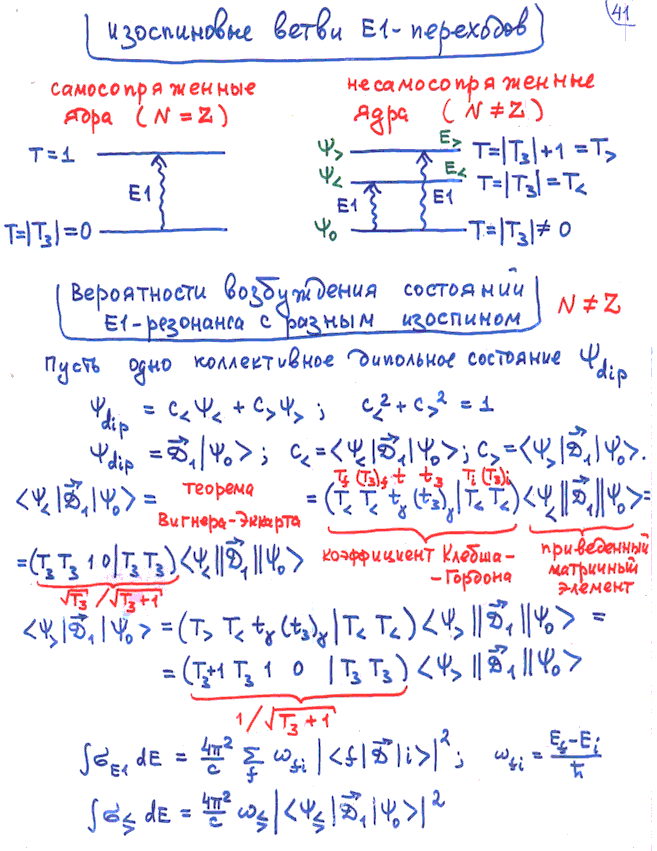 41
изоспиновые ветви E1-переходов
самосопряженные
ядра (N = Z)
несамосопряженные
ядра (N ≠ Z)
T=1
E1
T=|T₃|=0
Ψ> E> T=|T₃|+1=T>
Ψ< E< T=|T₃|=T<
E1 E1
Ψ₀ T=|T₃|≠0
Вероятности возбуждения состояний
E1-резонанса с разным изоспином
N ≠ Z
Пусть одно коллективное дипольное состояние Ψ_dip
Ψ_dip = C<Ψ< + C>Ψ> ; C<² + C>² = 1
Ψ_dip = D⃗₁|Ψ₀> ; C< = <Ψ<|D⃗₁|Ψ₀> ; C> = <Ψ>|D⃗₁|Ψ₀>.
T_f (T₃)_f t t₃ T_i (T₃)_i
<Ψ<|D⃗₁|Ψ₀> = теорема Вигнера-Эккарта = (T< T< t_γ (t₃)_γ | T< T<) <Ψ<||D⃗₁||Ψ₀> =
коэффициент Клебша-
-Гордона
приведенный
матричный
элемент
= (T₃ T₃ 1 0 | T₃ T₃) <Ψ<||D⃗₁||Ψ₀>
√T₃ / √T₃+1
<Ψ>|D⃗₁|Ψ₀> = (T> T< t_γ (t₃)_γ | T< T<) <Ψ>||D⃗₁||Ψ₀> =
= (T₃+1 T₃ 1 0 | T₃ T₃) <Ψ>||D⃗₁||Ψ₀>
1/√T₃+1
∫σ_E1 dE = 4π²/c Σ_f ω_fi |<f|D⃗|i>|² ; ω_fi = E_f−E_i / ħ
∫σ≶ dE = 4π²/c ω≶ |<Ψ≶|D⃗₁|Ψ₀>|²